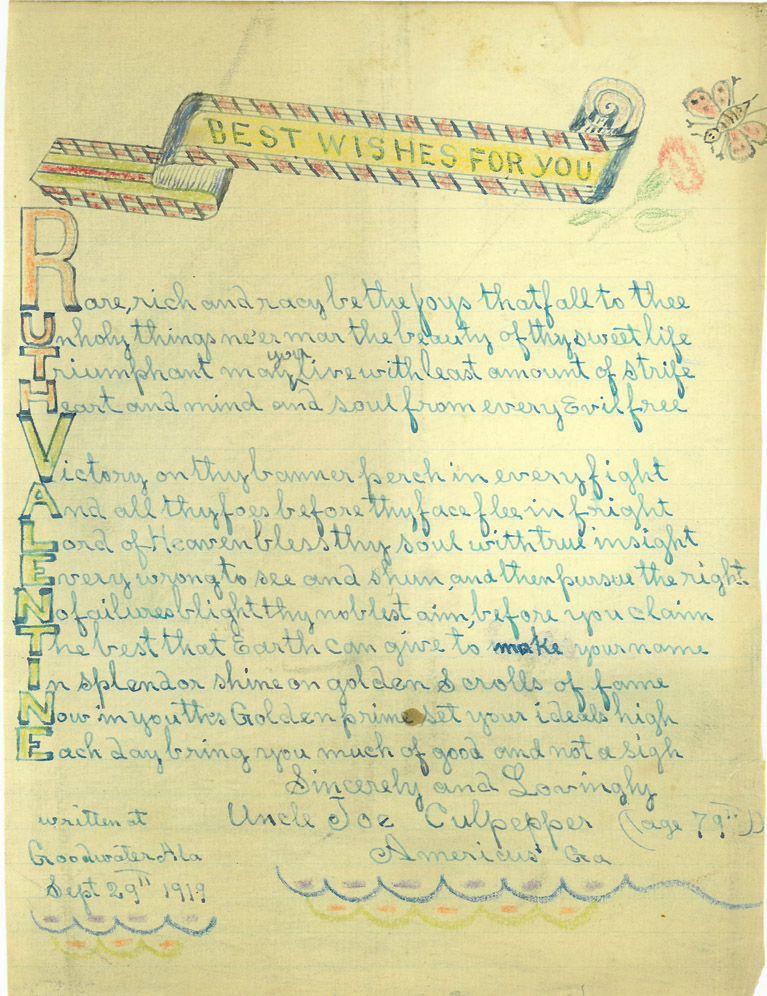 BEST WISHES FOR YOU
Rare, rich and racy be the Joys that fall to thee
Unholy things ne'er mar the beauty of thy sweet life
Triumphant may you live with least amount of strife
Heart and mind and soul from every Evil free
Victory on thy banner perch in every fight
And all thy foes before thy face flee in fright
Lord of Heaven bless thy soul with true insight
Every wrong to see and shun, and then pursue the right.
No failures blight thy noblest aim, before you claim
The best that Earth can give to make your name
In splendor shine on golden Scrolls of fame
Now in youth's Golden prime set your ideals high
Each day bring you much of good and not a sigh
Sincerely and Lovingly
Uncle Joe Culpepper (age 79th)
Americus Ga
written at
Goodwater Ala
Sept 29th 1919